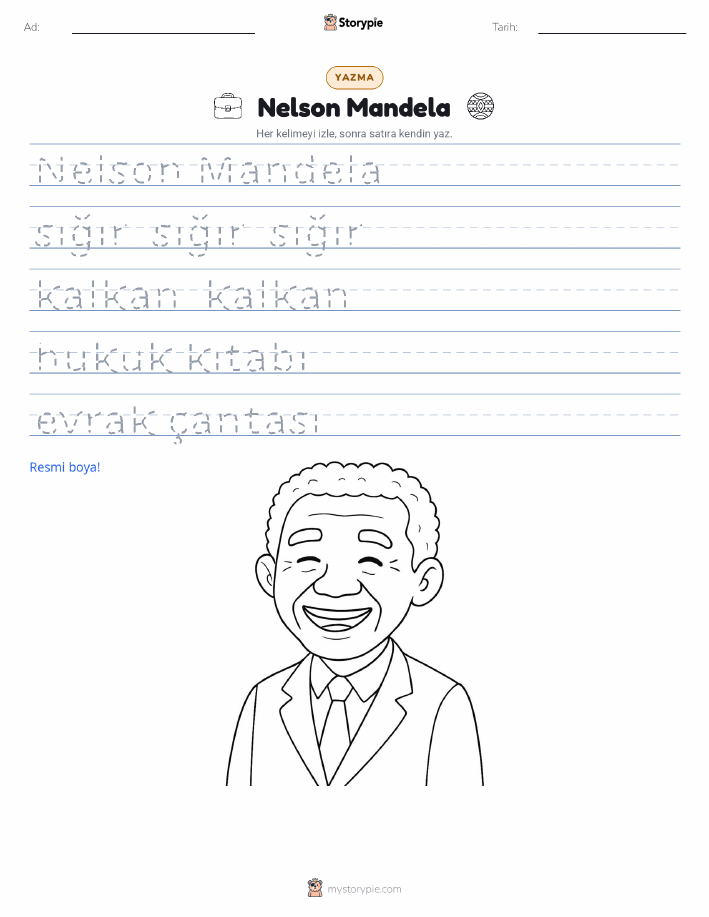 Ad:
Storypie
Tarih:
YAZMA
Nelson Mandela
Her kelimeyi izle, sonra satıra kendin yaz.
Nelson Mandela
sığır sığır sığır
kalkan kalkan
hukuk kitabı
evrak çantası
Resmi boya!
mystorypie.com